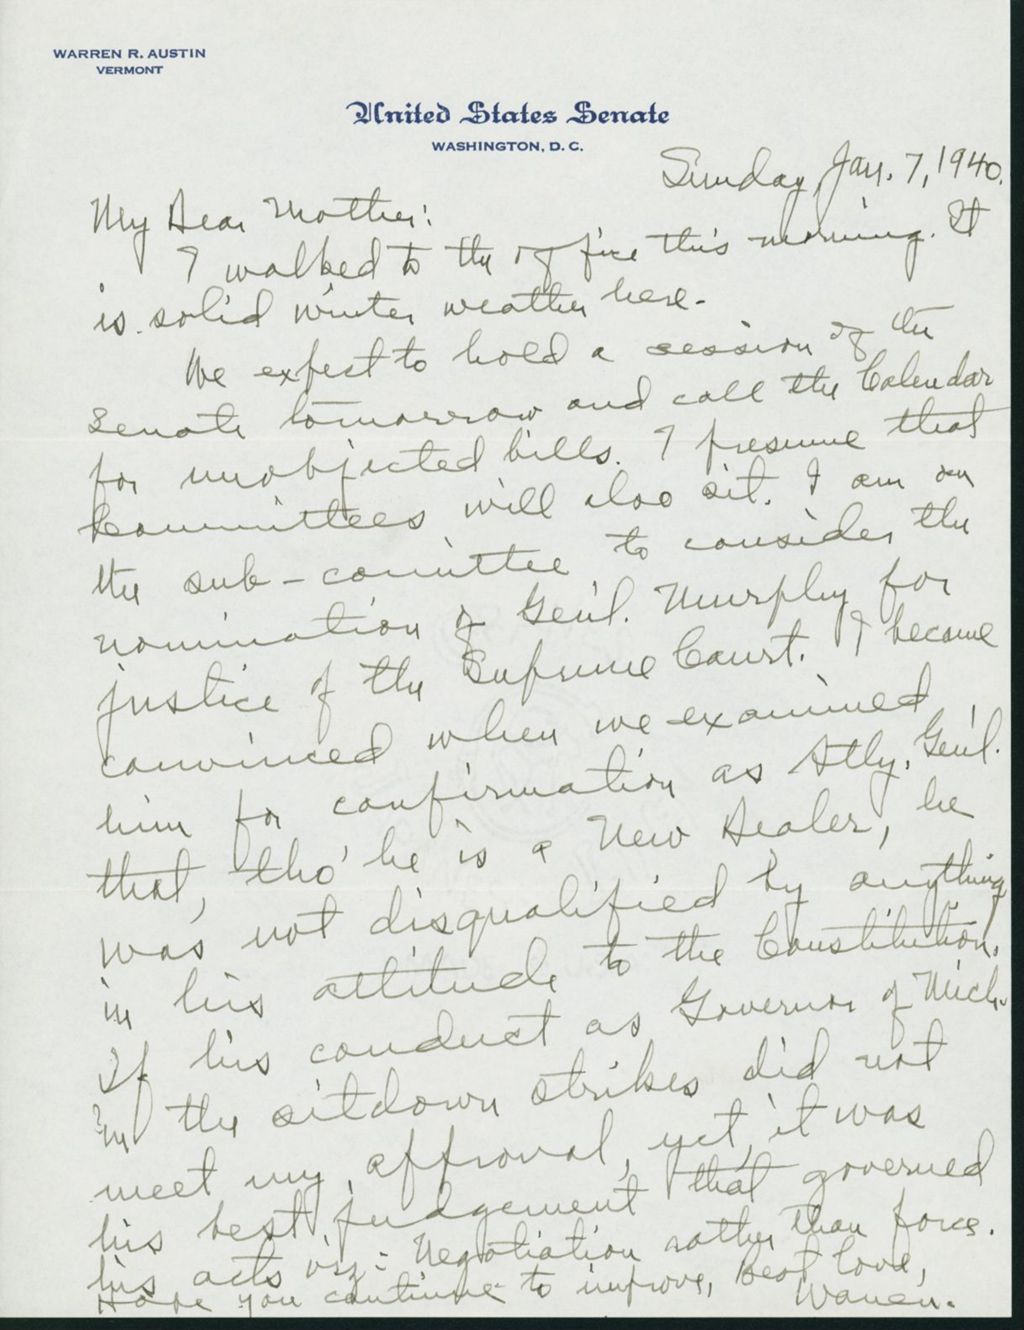 WARREN R. AUSTIN
VERMONT
United States Senate
WASHINGTON, D. C.
Sunday, Jan. 7, 1940.
My Dear Mother:
I walked to the office this morning. It
is solid winter weather here.
We expect to hold a session of the
Senate tomorrow and call the Calendar
for unobjected bills. I presume that
Committees will also sit. I am on
the sub-comittee to consider the
nomination of Gen'l. Murphy for
justice of the Supreme Court. I became
convinced when we examined
him for confirmation as Atty. Gen'l.
that, tho' he is a New Dealer, he
was not disqualified by anything
in his attitude to the Constitution.
If his conduct as Governor of Mich.
in the sitdown strikes did not
meet my approval, yet, it was
his best judgement that governed
his acts viz: Negotiation rather than force.
Hope you continue to improve, Best love,
Warren.